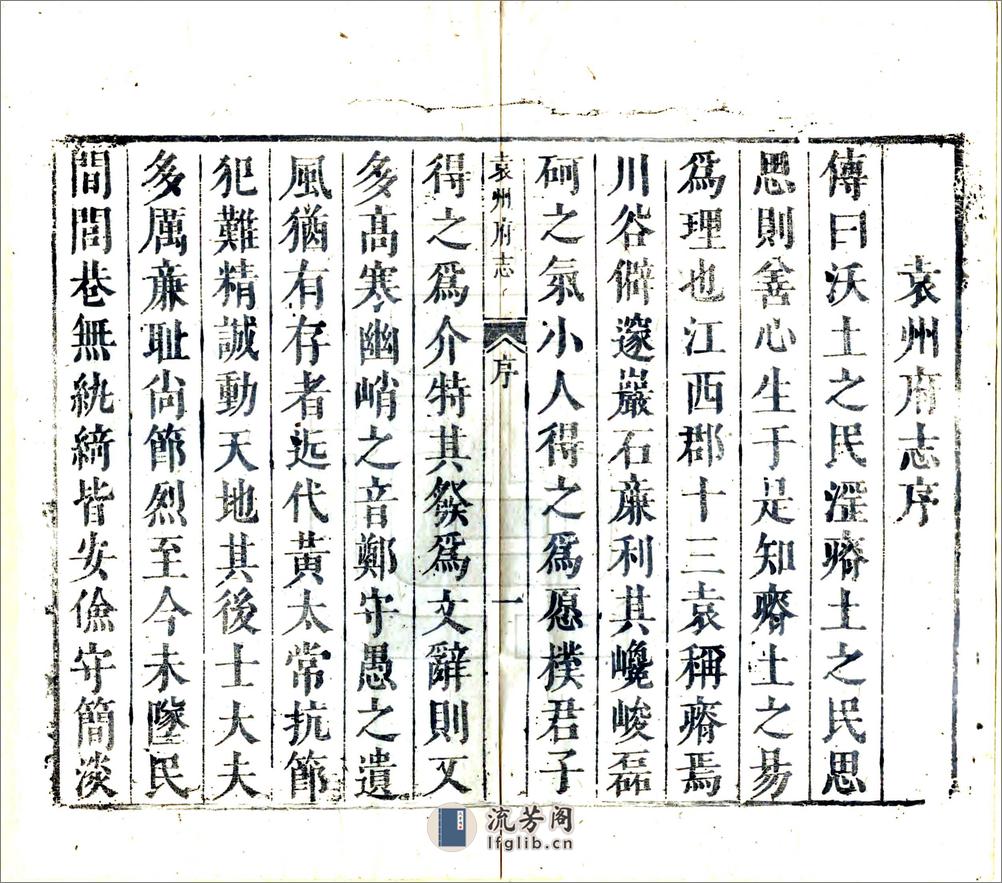 袁州府志序
傳曰沃土之民淫瘠土之民思
思則善心生于是知瘠土之易
爲理也江西郡十三袁稱瘠焉
川谷僻邃巖石亷利其巉峻磊
砢之氣小人得之爲愿樸君子
袁州府志
序
一
得之爲介特其發爲文辭則文
多高寒幽峭之音鄭守愚之遺
風猶有存者近代黃太常抗節
犯難精誠動天地其後士大夫
多厲亷耻尙節烈至今未墜民
間閭巷無紈綺皆安儉守簡淡
流芳阁
lfglib.cn